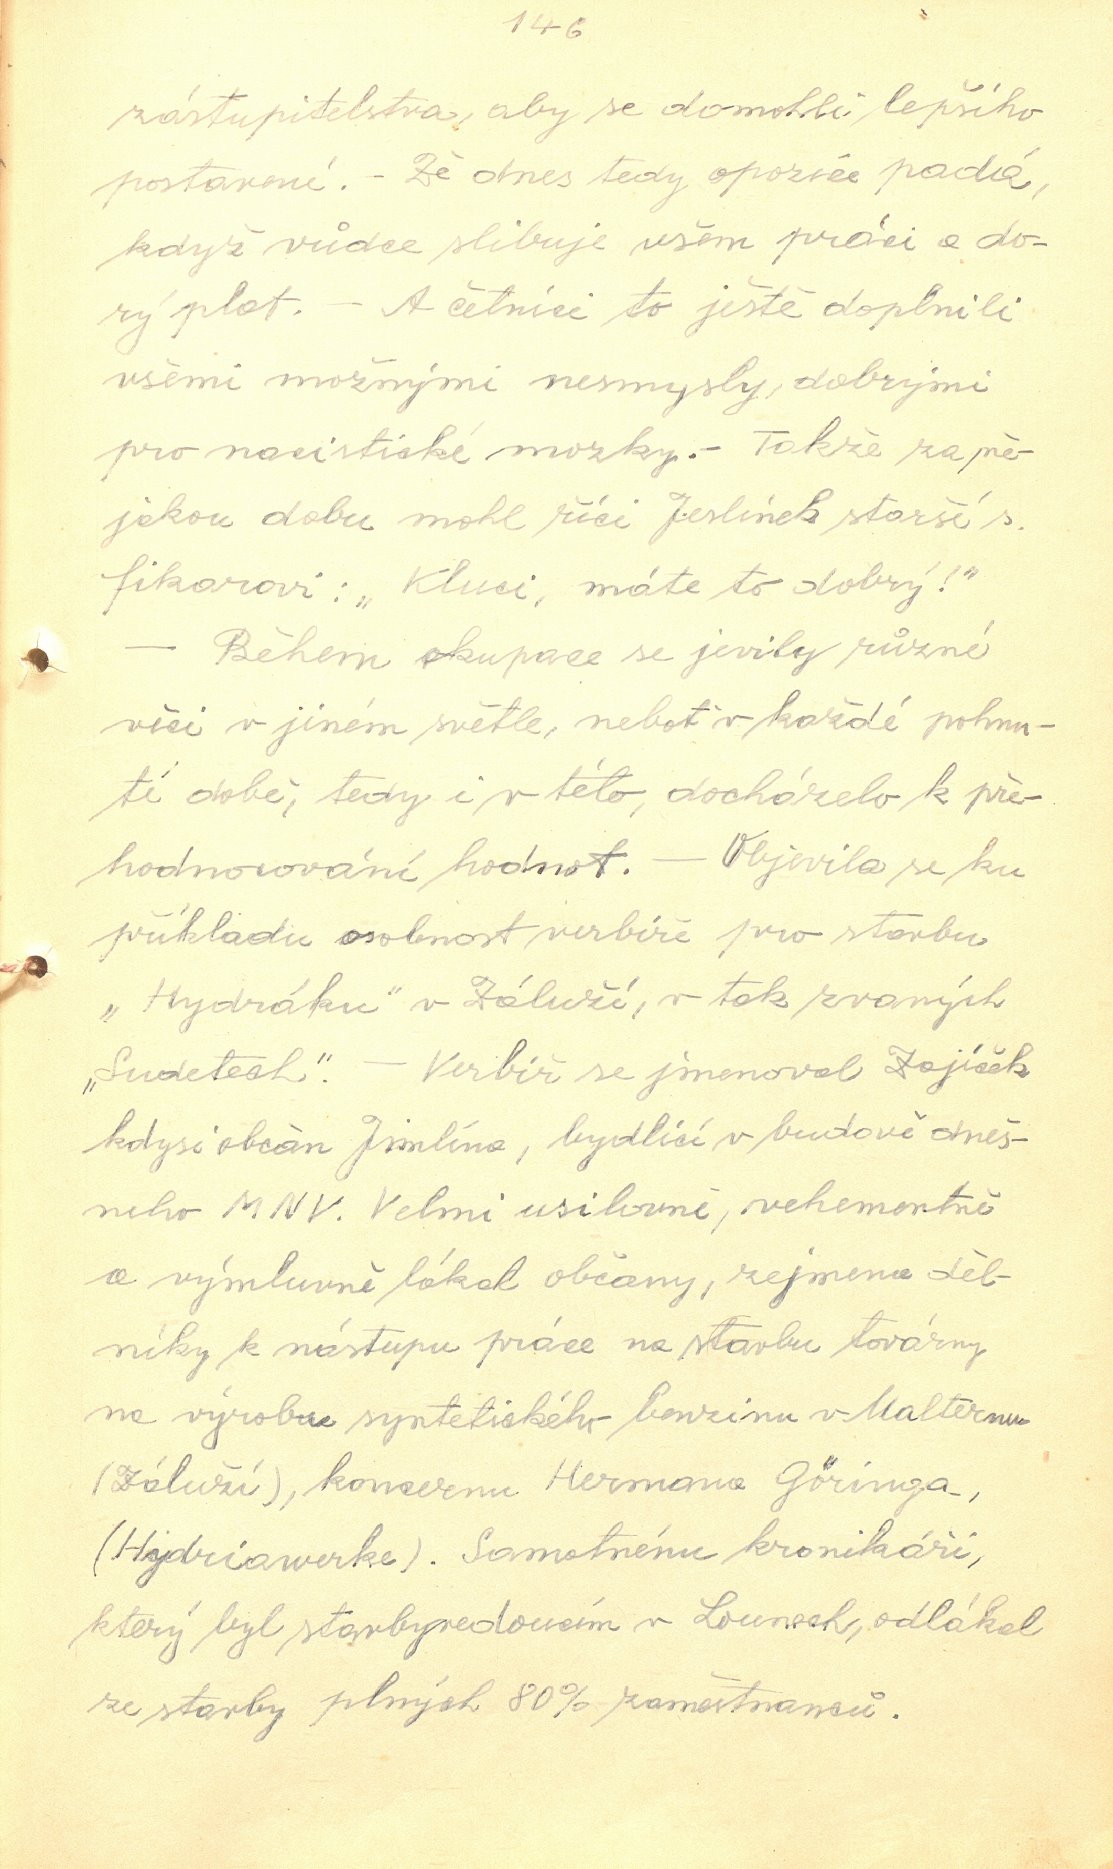 146
zástupitelstva, aby se domohli lepšího
postavení. - Že dnes tedy opozice padá,
když vůdce slibuje všem práci a do-
rý plat. - A četníci to ještě doplnili
všemi možnými nesmysly, dobrými
pro nacistické mozky. - Takže za ně-
jakou dobu mohl říci Jeslínek starší s.
fikarovi: „Kluci, máte to dobrý!"
- Během okupace se jevily různé
věci v jiném světle, neboť v každé pohnu-
té době, tedy i v této, docházelo k pře-
hodnocování hodnot. - Objevila se ku
příkladu osobnost verbíře pro stavbu
„Hydráku" v Záluží, v tak zvaných
„Sudetech". - Verbíř se jmenoval Zajíček
kdysi občan Jimlína, bydlící v budově dneš-
neho MNV. Velmi usilovně, vehementně
a výmluvně lákal občany, zejmena děl-
níky k nástupu práce na stavbu továrny
na výrobu syntetického benzinu v Malternu
(Záluží), koncernu Hermana Göringa,
(Hydriawerke). Samotnému kronikáři,
který byl stavbyvedoucím v Lounech, odlákal
ze stavby plných 80% zaměstnanců.